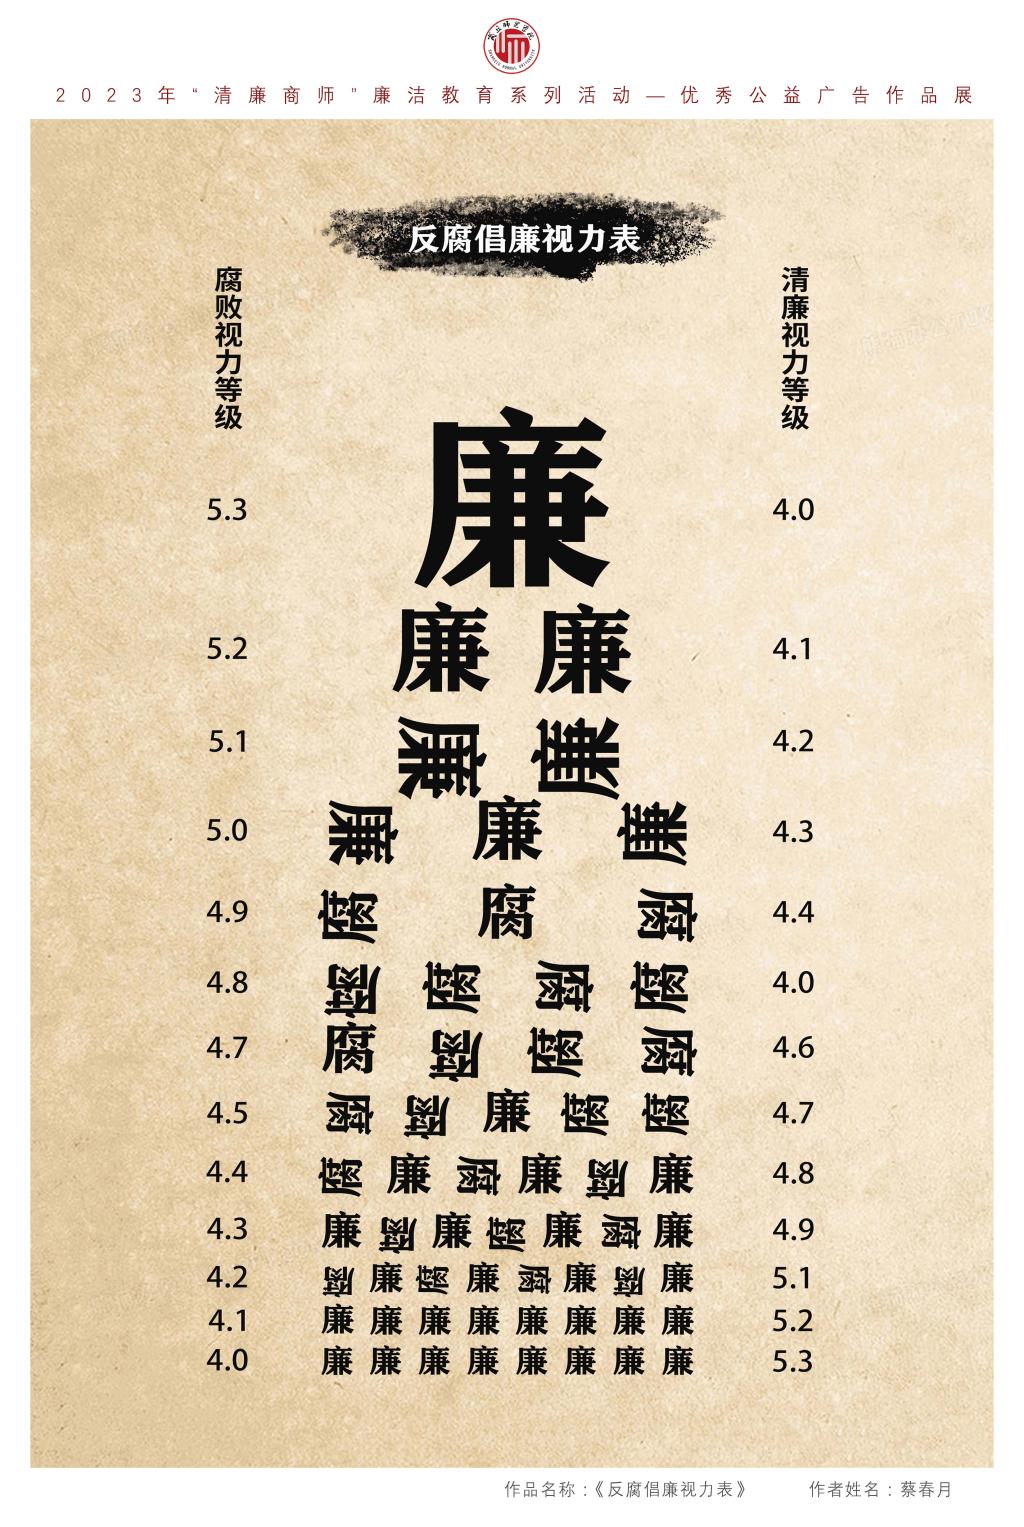 2023年“清廉商师”廉洁教育系列活动—优秀公益广告作品展
反腐倡廉视力表
腐败视力等级
清廉视力等级
5.3 廉 4.0
5.2 廉 廉 4.1
5.1 廉 廉 4.2
5.0 廉 廉 廉 4.3
4.9 腐 腐 腐 4.4
4.8 腐 腐 腐 腐 4.0
4.7 腐 腐 腐 腐 4.6
4.5 腐 腐 廉 腐 腐 4.7
4.4 腐 廉 腐 廉 腐 廉 4.8
4.3 廉 腐 廉 腐 廉 腐 廉 4.9
4.2 腐 廉 腐 廉 腐 廉 腐 廉 5.1
4.1 廉 廉 廉 廉 廉 廉 廉 廉 5.2
4.0 廉 廉 廉 廉 廉 廉 廉 廉 5.3
作品名称：《反腐倡廉视力表》 作者姓名：蔡春月